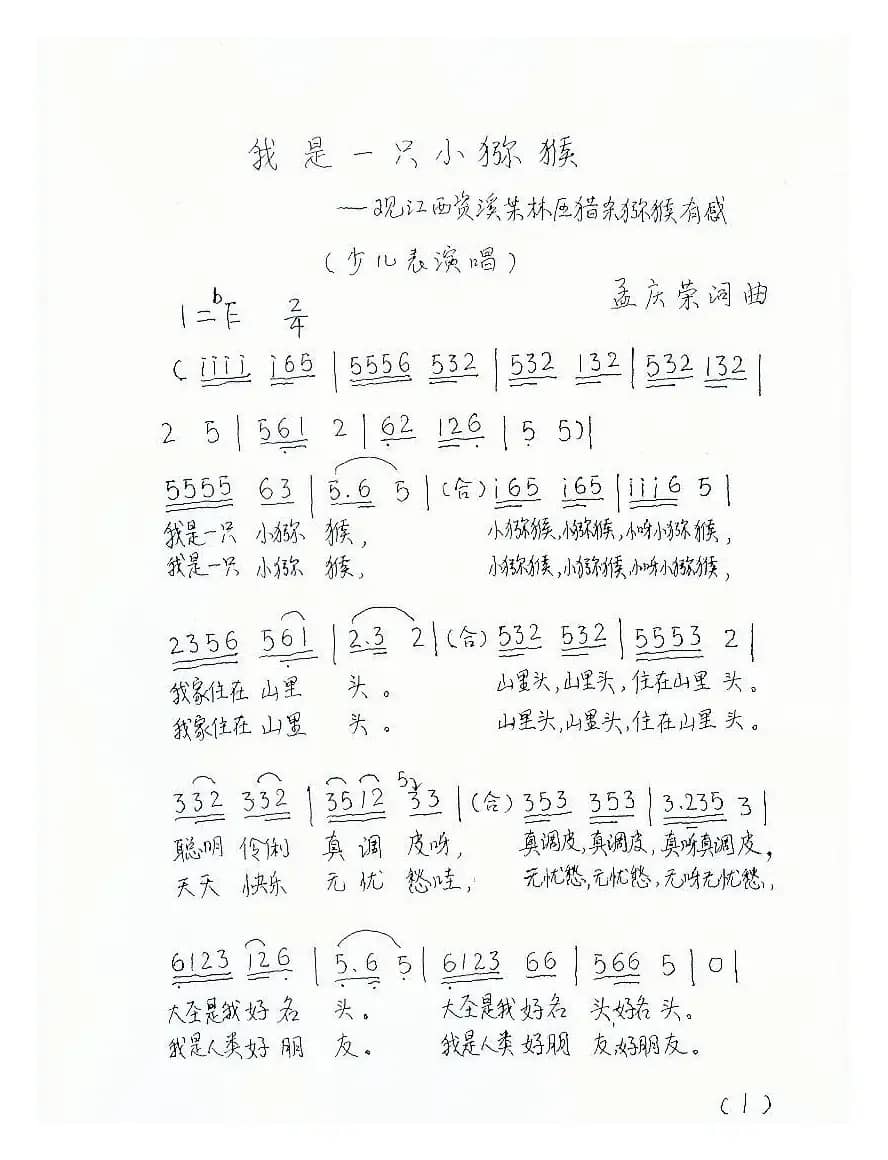 我是一只小猕猴
——观江西资溪某林区猎杀猕猴有感
(少儿表演唱)
孟庆荣词曲
1=bE 2/4
(iiii i65 | 5556 532 | 532 132 | 532 132 |
2 5 | 561 2 | 62 126 | 5 5) |
5555 63 | 5.6 5 | (合) i65 i65 | iiii6 5 |
我是一只 小猕 猴, 小猕猴,小猕猴,小呀小猕猴,
我是一只 小猕 猴, 小猕猴,小猕猴,小呀小猕猴,
2356 561 | 2.3 2 | (合) 532 532 | 5553 2 |
我家住在 山里 头。 山里头,山里头,住在山里 头。
我家住在 山里 头。 山里头,山里头,住在山里 头。
332 332 | 3512 5 33 | (合) 353 353 | 3.235 3 |
聪明 伶俐 真 调 皮呀, 真调皮,真调皮,真呀真调皮,
天天 快乐 无 忧 愁哇, 无忧愁,无忧愁,无呀无忧愁,
6123 126 | 5.6 5 | 6123 66 | 566 5 | 0 |
大圣是我 好 名 头。 大圣是我 好 名 头,好名 头。
我是人类 好 朋 友。 我是人类 好 朋 友,好朋 友。
(1)